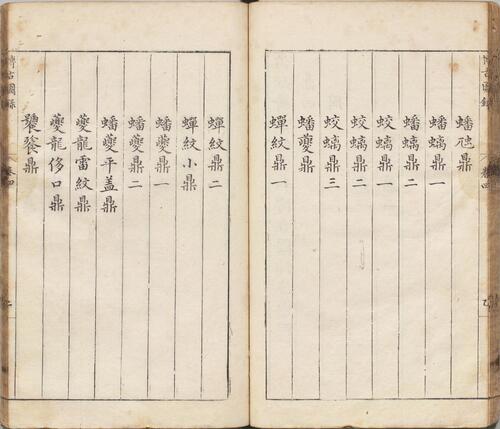 蟠虺鼎
蟠螭鼎一
蟠螭鼎二
蛟螭鼎一
蛟螭鼎二
蛟螭鼎三
蟠夔鼎
蟬紋鼎一
蟬紋鼎二
蟬紋小鼎
蟠夔鼎一
蟠夔鼎二
蟠夔平蓋鼎
夔龍雷紋鼎
夔龍侈口鼎
饕餮鼎
博古圖錄
卷四